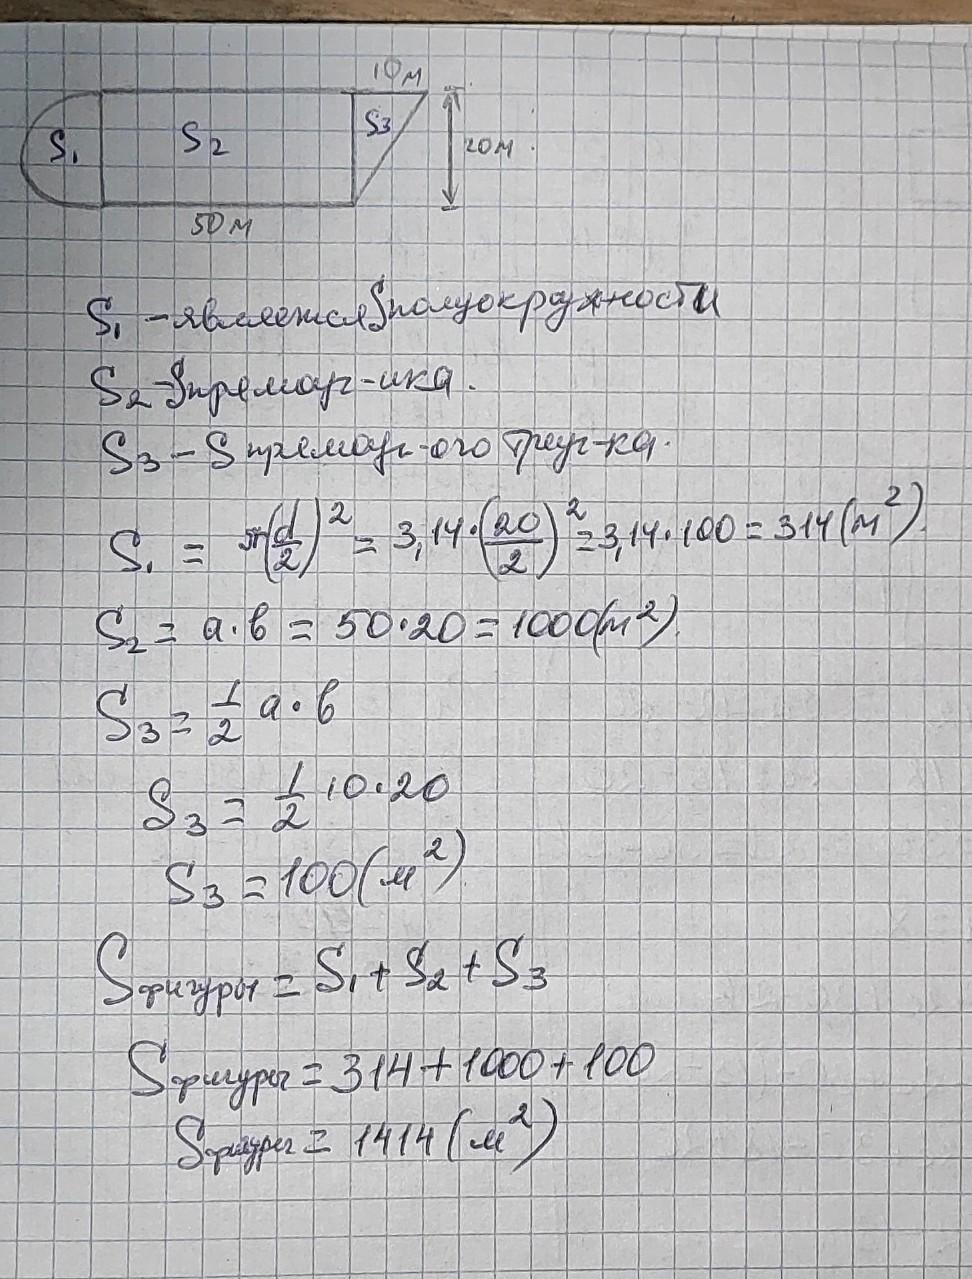 10м
S₁ S₂ S₃
20м.
50м
S₁ - является S полуокружности
S₂ - S премоуг-ика.
S₃ - S премоуг-ого треуг-ка.
S₁ = π(d/2)² = 3,14·(20/2)² = 3,14·100 = 314(м²).
S₂ = a·b = 50·20 = 1000(м²).
S₃ = 1/2 a·b
S₃ = 1/2 10·20
S₃ = 100(м²)
Sфигуры = S₁ + S₂ + S₃
Sфигуры = 314 + 1000 + 100
Sфигуры = 1414(м²)